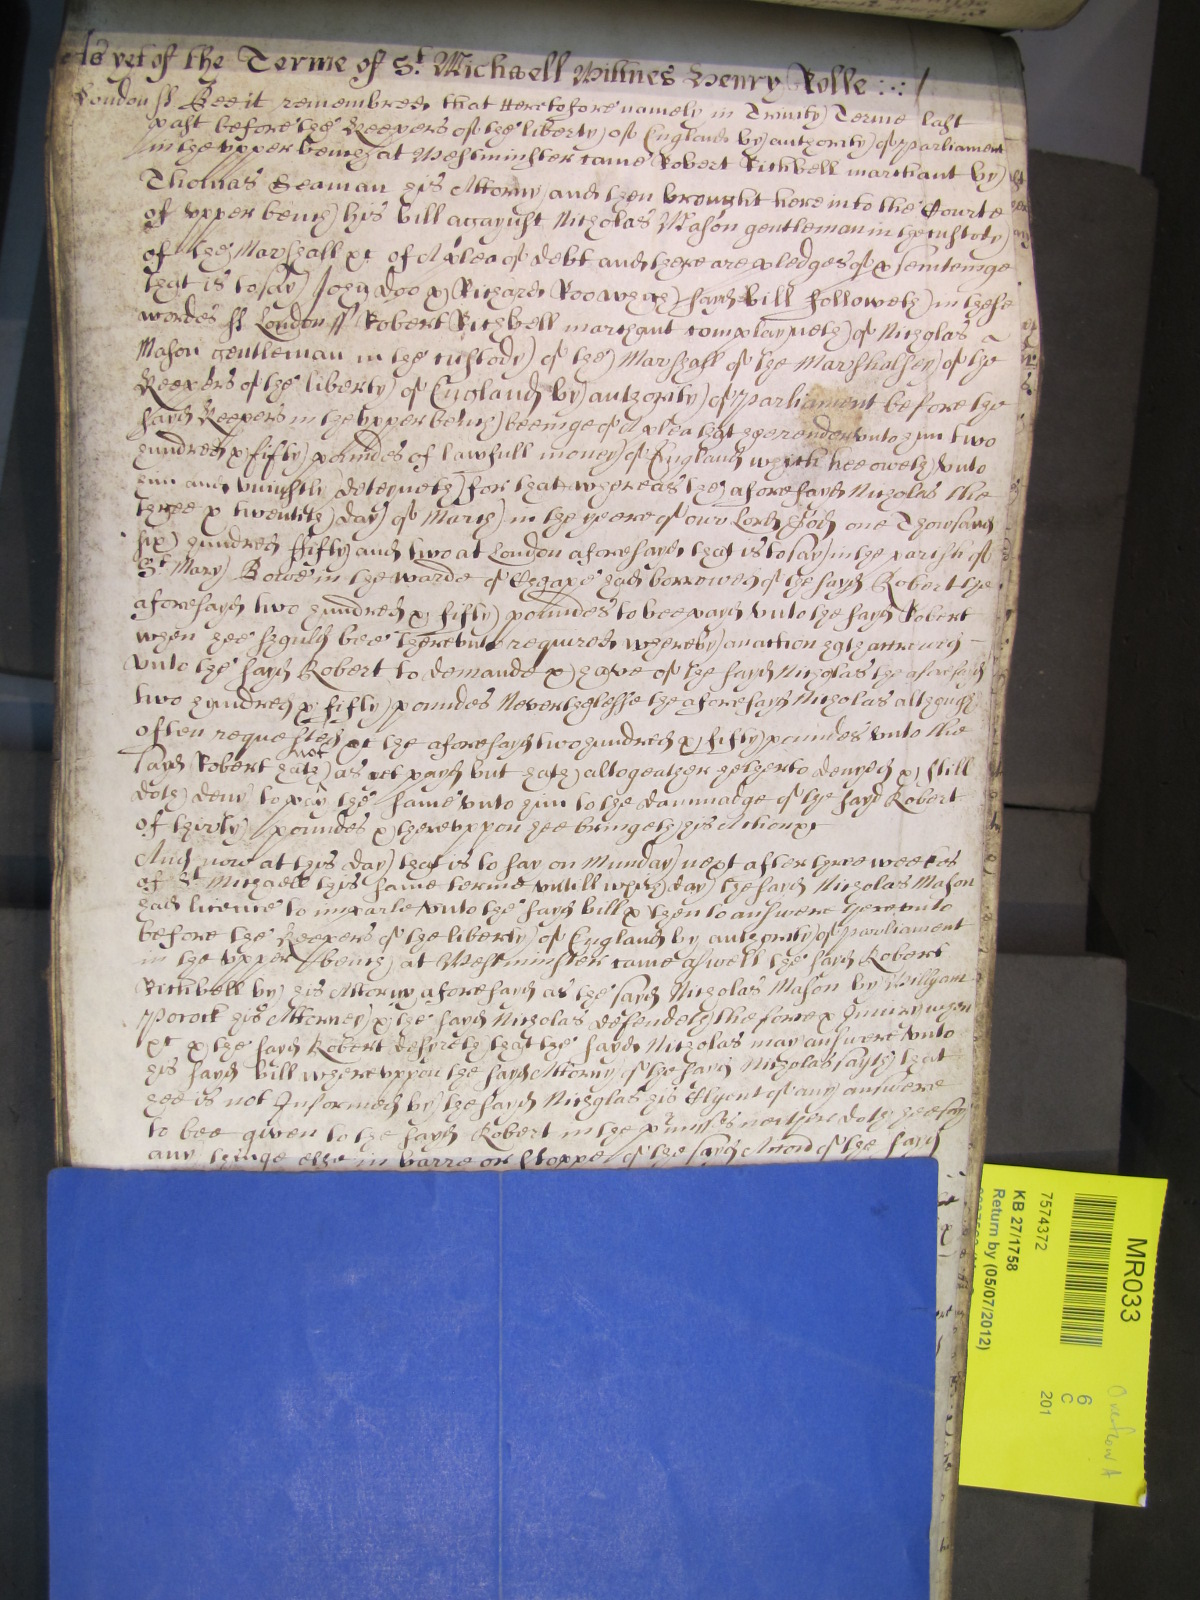 As yet of the Terme of St Michaell Wittnes Henry Rolle
London ss Bee it remembred that Heretofore namely in Trinity Terme last
past before the Keepers of the liberty of England by authority of Parliament
in the vpper bench at Westminster came Robert Richbell marchant by
Thomas Seaman his Attorny and then brought here into the Courte
of vpper bench his bill aggaynst Nicholas Mason gentleman in the custody
of the Marshall &c of A plea of debt and there are pledges of
that is to say John Doo & Richard Roo which sayd Bill followeth in these
wordes ss London ss Robert Richbell marchant complayneth of Nicholas
Mason gentleman in the custody of the Marshall of the Marshalsey of the
Keepers of the liberty of England by authority of Parliament before the
sayd Keepers in the vpper bench beeinge of A plea that hee render vnto him two
hundred & fifty poundes of lawfull money of England which hee oweth vnto
him and vniustly deteyneth for that whereas the aforesayd Nicholas the
three & twentith day of March in the yeare of our Lord God one Thowsand
six hundred ffifty and two at London aforesayd that is to say in the parish of
St Mary Bowe in the warde of Cheape had borrowed of the sayd Robert the
aforesayd two hundred & fifty poundes to bee payd vnto the sayd Robert
when hee should bee therevnto required whereby an action hath accrued
vnto the sayd Robert to demande & have of the sayd Nicholas the aforesayd
two hundred & fifty poundes Neverthelesse the aforesayd Nicholas although
often requested &c the aforesayd two hundred & fifty poundes vnto the
sayd Robert hath not as yet payd but hath altogeather hetherto denyed & still
doth deny to pay the same vnto him to the dammadge of the sayd Robert
of thirty poundes & therevppon hee bringeth his Action &c
And now at this day that is to say on Munday next after three weekes
of St Michaell this same terme vntill which day the sayd Nicholas Mason
had licence to imparle vnto the sayd bill & then to answere herevnto
before the Keepers of the liberty of England by authority of Parliament
in the vpper bench at Westminster came aswell the sayd Robert
Richbell by his Attorny aforesayd as the sayd Nicholas Mason by Willyam
Pocock his Attorney & the sayd Nicholas defendeth the force & Iniury when
&c & the sayd Robert desyreth that the sayd Nicholas may answere vnto
his sayd bill wherevppon the sayd Attorny of the sayd Nicholas sayth that
hee is not Informed by the sayd Nicholas his Clyent of any answere
to bee given to the sayd Robert in the premisses neither doth hee say
any thinge else in barre or stoppe of the sayd Accion of the sayd
MR033
7574372
KB 27/1758
Return by (05/07/2012)
6
C
201
Overflow A